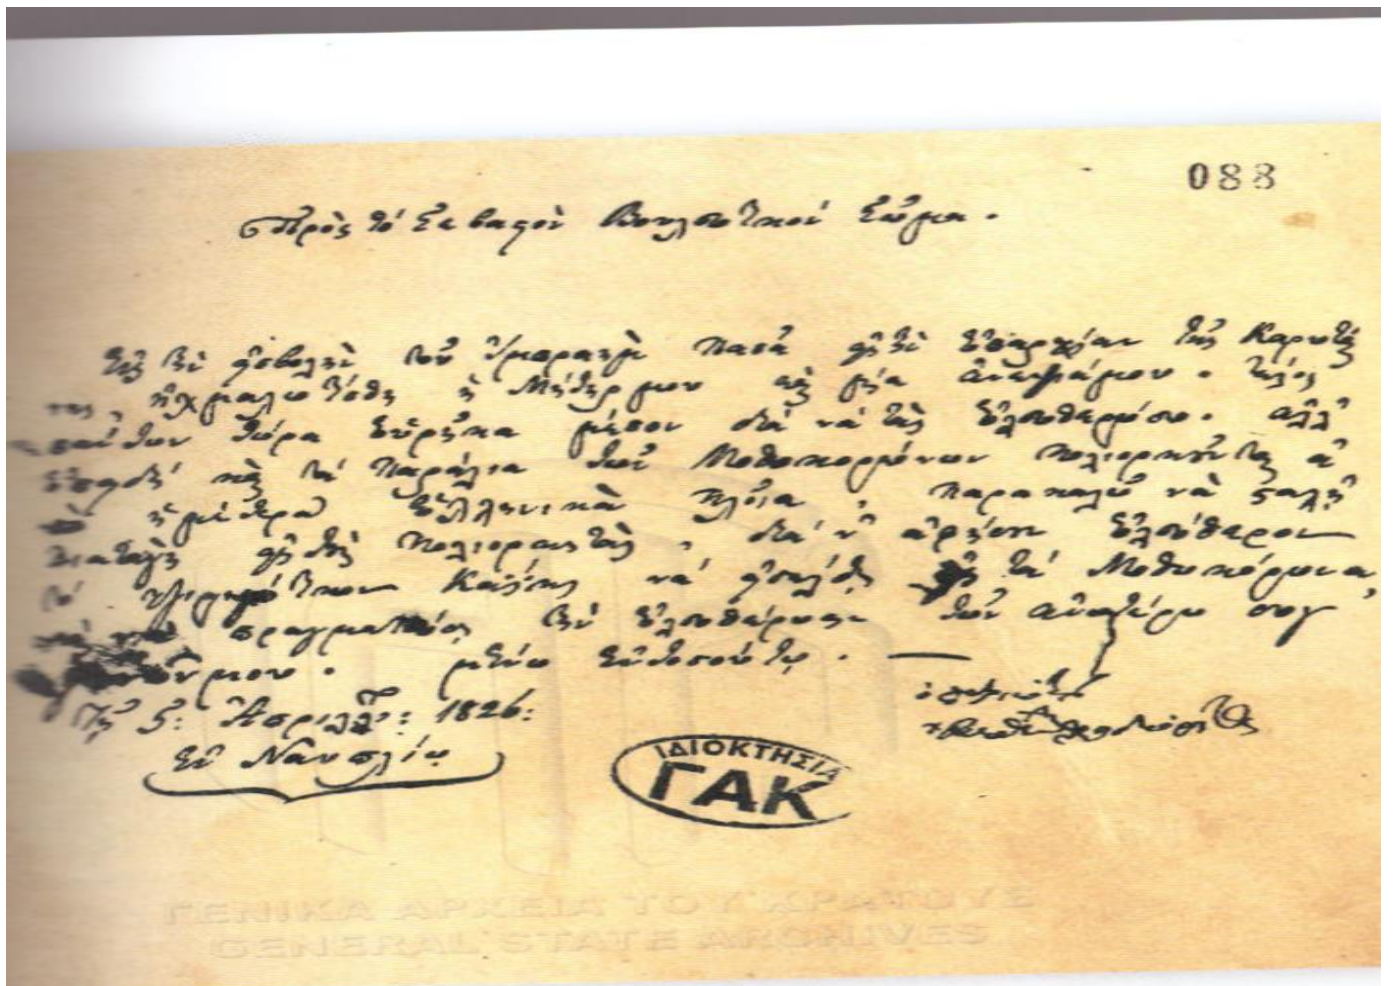 088
Πρὸς τό Σεβαστὸν Βουλευτικόν Σῶμα.
Εἰς τὴν εἰσβολὴν τοῦ Ἰμπραὴμ Πασᾶ εἰς τὴν ἐπαρχίαν τῆς Καρυταί
νης, ἠχμαλωτίσθη ἡ Μήτηρ μου καὶ μία ἀνεψιάμου. τέλος
πάντων τώρα εὕρηκα μέσον διὰ νὰ τὰς ἐλευθερώσω. ἀλλ'
ἐπειδή καὶ τὰ παράλια τῶν Μοθοκορώνων πολιορκοῦνται ἀ
πὸ ἡμέτερα ἑλληνικὰ πλοῖα, παρακαλῶ νὰ σταλῇ
διαταγὴ εἰς τοὺς πολιορκητὰς, διὰ ν' ἀφήσουν ἐλεύθερον
τό καΐκι νά εἰσέλθῃ εἰς τά Μοθοκόρωνα,
πραγματικῶς τὴν ἐλευθέρωσιν τῶν ἀνωτέρω συγ
γενῶν μου. μένω εὐτοσούτῳ.
Τῇ 5: Ἀπριλλίου: 1826:
Ἐν Ναυπλίῳ
ὁ πατριώτης
ΙΔΙΟΚΤΗΣΙΑ
ΓΑΚ
ΓΕΝΙΚΑ ΑΡΧΕΙΑ ΤΟΥ ΚΡΑΤΟΥΣ
GENERAL STATE ARCHIVES